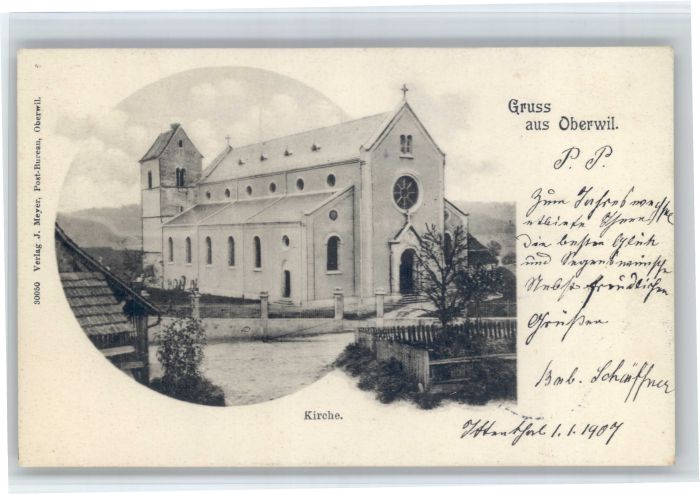 Gruss
aus Oberwil.
P. P.
Zum Jahreswechsel
entbiete Ihnen
die besten Glück
und Segenswünsche
Nebst freundlichen
Grüßen
Bab. Schäffner
Ittenthal 1.1.1907
Kirche.
30050 Verlag J. Meyer, Post-Bureau, Oberwil.